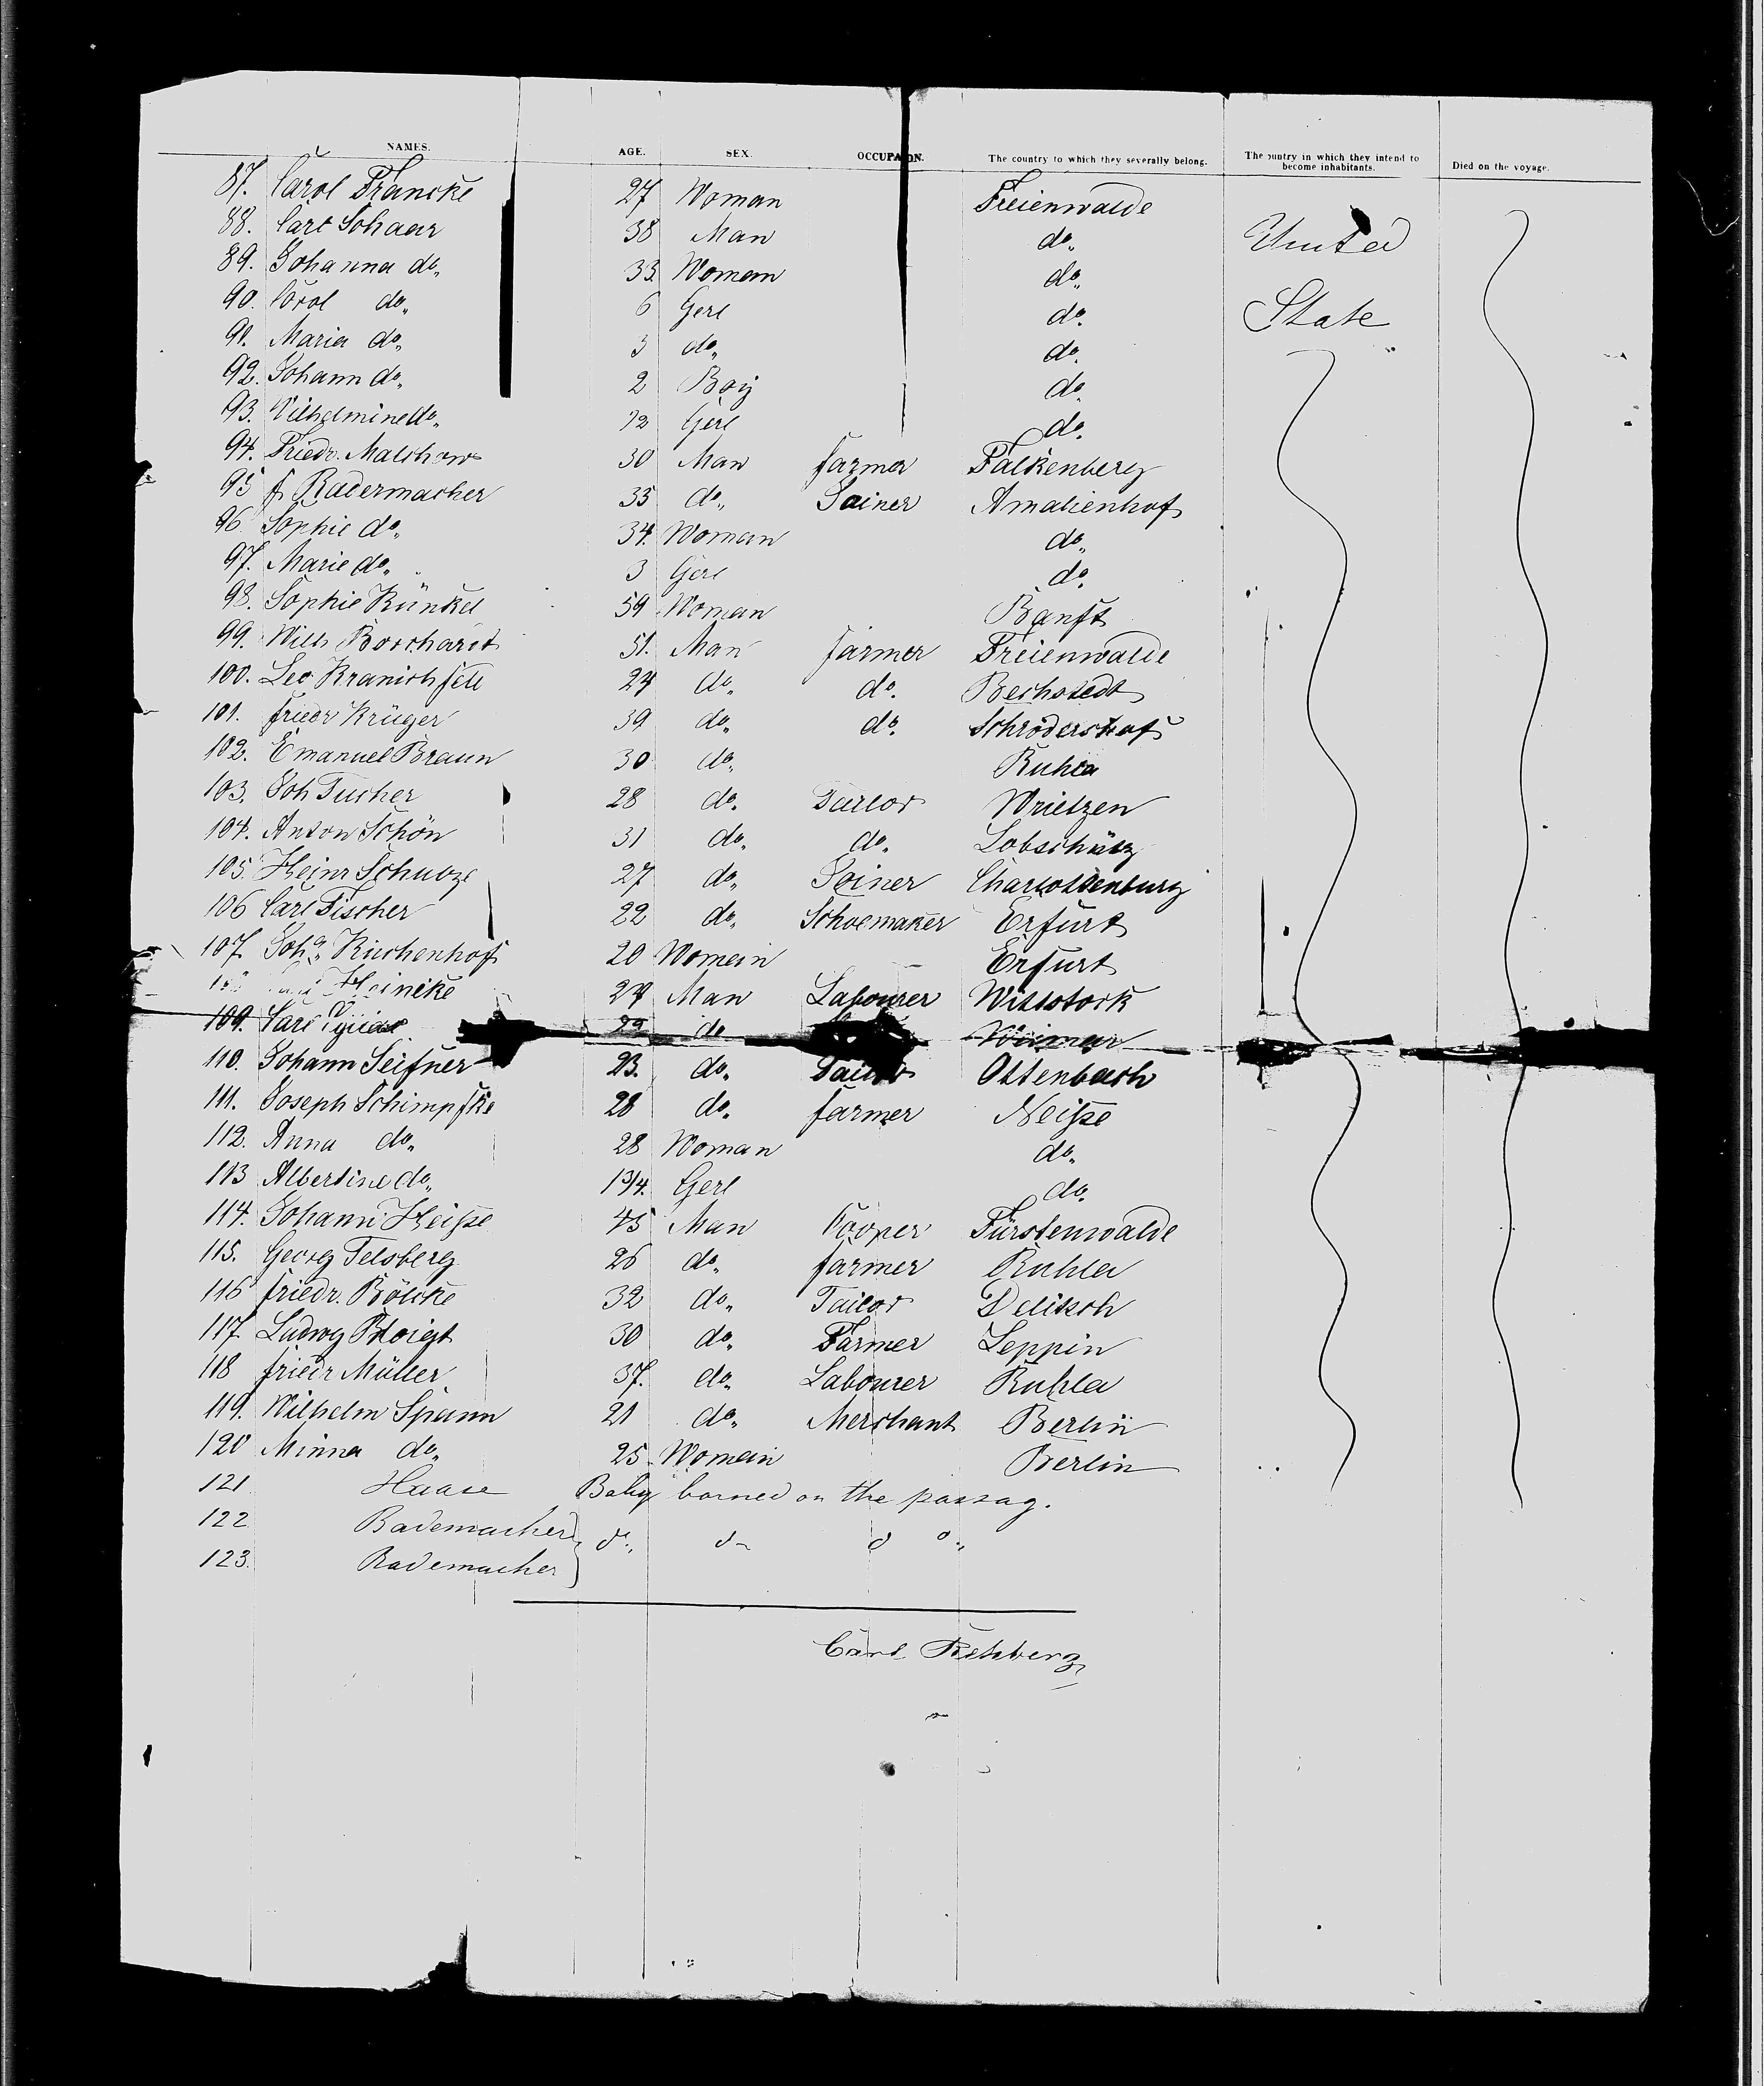 NAMES. AGE. SEX. OCCUPA ON. The country to which they severally belong. The ountry in which they intend to become inhabitants. Died on the voyage.
87. Carol Francke 27 Woman Freienwalde
88. Carl Schaar 38 Man do. United
89. Johanna do. 33. Woman do.
90. Carol do. 6 Gerl do. State
91. Maria do. 3 do. do.
92. Johann do. 2 Boy do.
93. Wilhelmine do. 12 Gerl do.
94. Friedr. Malchow 30 Man farmer Falkenberg
95 f. Radermacher 35 do. Joiner Amalienhof
96 Sophie do. 34. Woman do.
97. Marie do. 3 Gerl do.
98. Sophie Künkel 59 Woman Ranft
99. Wilh Borchardt 51. Man farmer Freienwalde
100. Leo Kranichfeld 24 do. do. Bechstedt
101. friedr Krüger 39 do. do. Schrödershof
102. Emanuel Braun 30 do. Ruhla
103. Joh Tucher 28 do. Tailor Wrietzen
104. Anton Schön 31 do. do. Lobschütz
105. Heinr Schulze 27 do. Joiner Charlottenburg
106 Carl Fischer 22 do. Schoemaker Erfurt
107. Joha. Kirchenhof 20 Woman Erfurt
Heincke 24 Man Labourer Wittstock
109. Carl do Weimar
110. Johann Seifner 23. do. Tailor Ottenbach
111. Joseph Schimpfke 28 do. farmer Neiße
112. Anna do. 28 Woman do.
113 Albertine do. 1 3/4. Gerl do.
114. Johann Heiße 45 Man Cooper Fürstenwalde
115. Georg Felsberg 26 do. farmer Ruhla
116 friedr. Bölcke 32 do. Tailor Delitzsch
117. Ludwg Voigt 30 do. Farmer Leppin
118 friedr Müller 37. do. Labourer Ruhla
119. Wilhelm Spann 21 do. Merchant Berlin
120 Minna do. 25 Woman Berlin
121 Haase Baby borned on the passag.
122 Rademacher do. do do.
123. Rademacher
Carl Rehberg